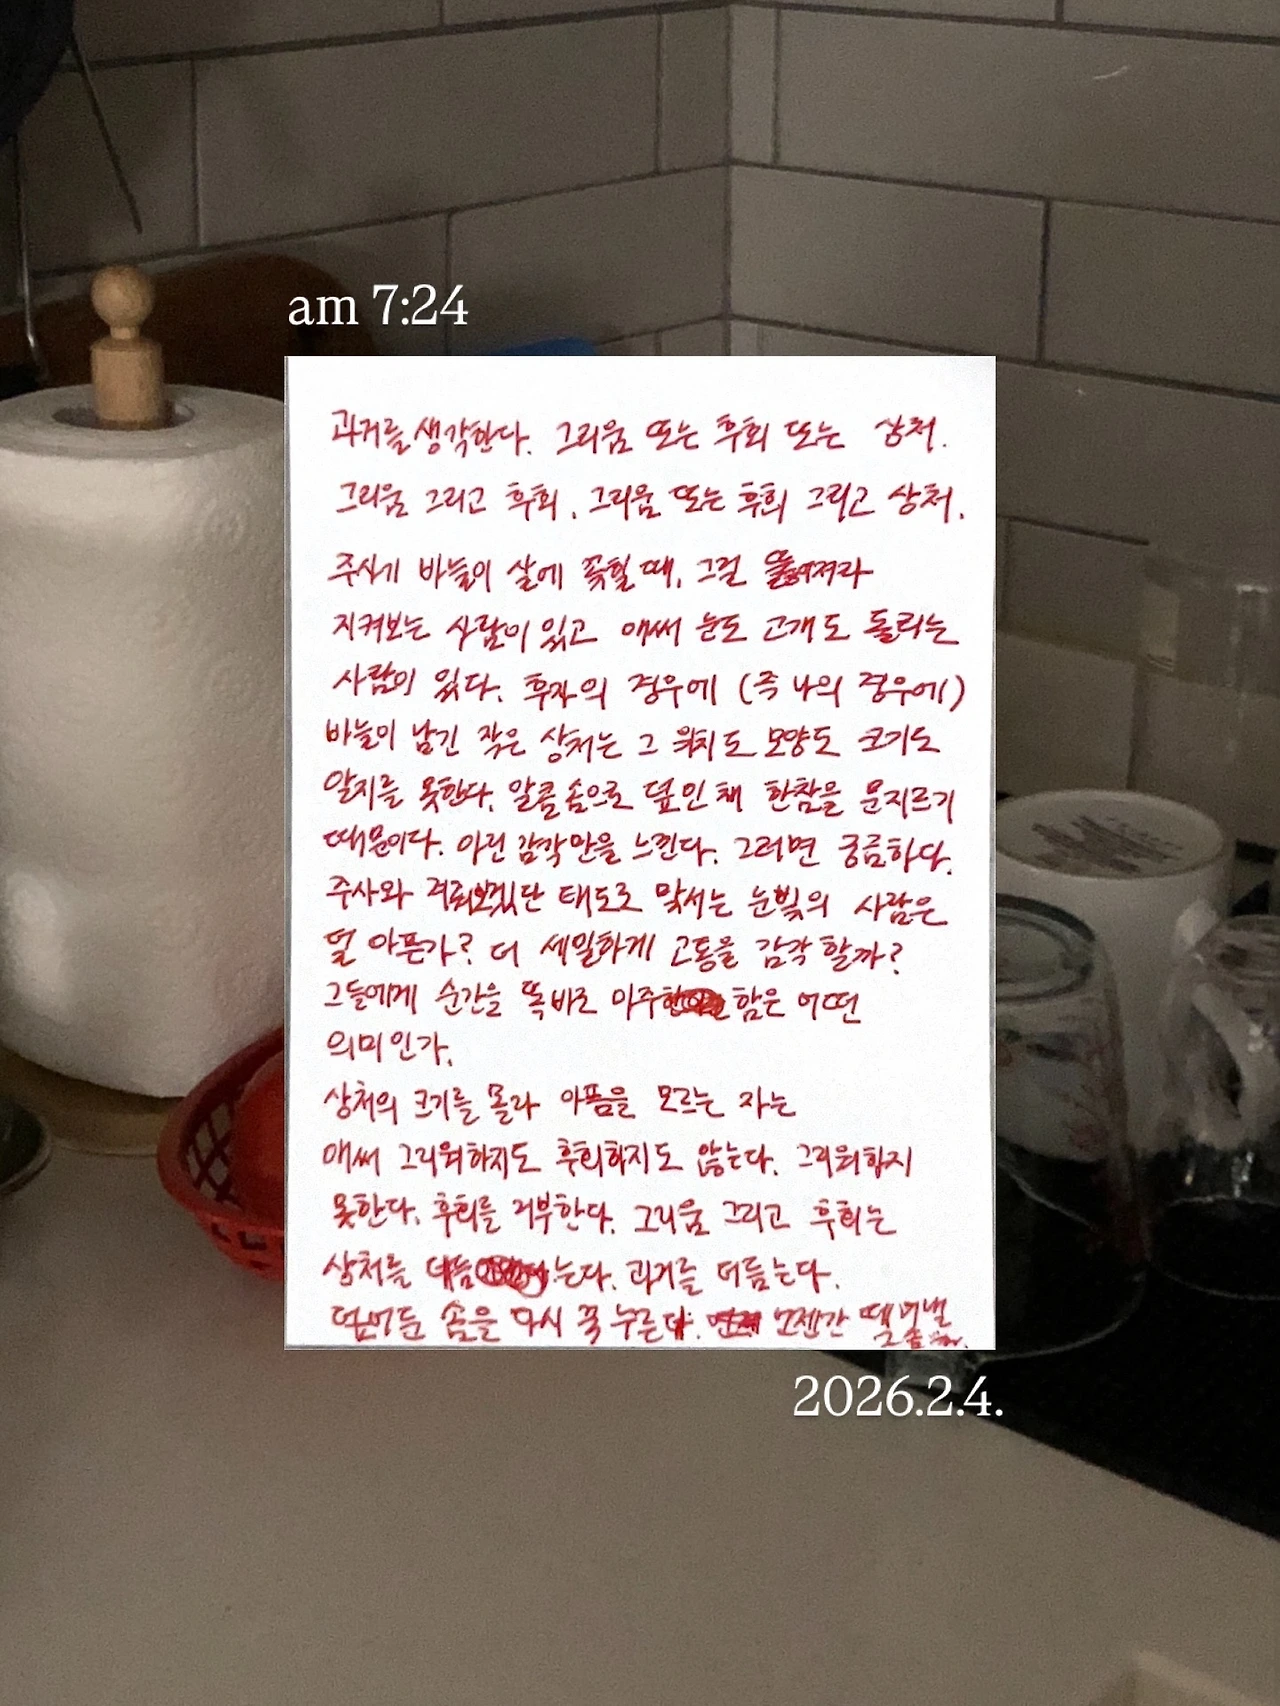 am 7:24
과거를 생각한다. 그리움 또는 후회 또는 상처.
그리움 그리고 후회. 그리움 또는 후회 그리고 상처.
주사기 바늘이 살에 꽂힐 때, 그걸 뚫어져라
지켜보는 사람이 있고 애써 눈도 고개도 돌리는
사람이 있다. 후자의 경우에 (즉 나의 경우에)
바늘이 남긴 작은 상처는 그 위치도 모양도 크기도
알지를 못한다. 알콜솜으로 덮인 채 한참을 문지르기
때문이다. 아린 감각만을 느낀다. 그러면 궁금하다.
주사와 겨뤄보겠단 태도로 맞서는 눈빛의 사람은
덜 아픈가? 더 세밀하게 고통을 감각할까?
그들에게 순간을 똑바로 마주함은 어떤
의미인가.
상처의 크기를 몰라 아픔을 모르는 자는
애써 그리워하지도 후회하지도 않는다. 그리워하지
못한다. 후회를 거부한다. 그리움 그리고 후회는
상처를 더듬는다. 과거를 더듬는다.
덮어둔 솜을 다시 꾹 누른다. 언젠간 떼어낼
2026.2.4.